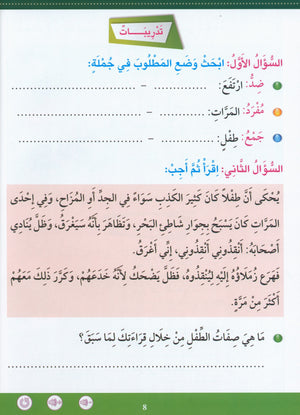 تَدْرِيبَــــاتٌ
السُّؤَالُ الأَوَّلُ: ابْحَثْ وَضَعِ المَطْلُوبَ فِي جُمْلَةٍ:
ضِدُّ: ارْتَفَعَ: ........................ – ........................
مُفْرَدُ: المَرَّاتِ: ........................ – ........................
جَمْعُ: طِفْلٍ: ........................ – ........................
السُّؤَالُ الثَّانِي: اقْرَأْ ثُمَّ أَجِبْ:
يُحْكَى أَنَّ طِفْلاً كَانَ كَثِيرَ الكَذِبِ سَوَاءً فِي الجِدِّ أَوِ المُزَاحِ، وَفِي إِحْدَى
المَرَّاتِ كَانَ يَسْبَحُ بِجِوَارِ شَاطِئِ البَحْرِ، وَتَظَاهَرَ بِأَنَّهُ سَيَغْرَقُ، وَظَلَّ يُنَادِي
أَصْحَابَهُ: أَنْقِذُونِي أَنْقِذُونِي، إِنِّي أَغْرَقُ.
فَهَرَعَ زُمَلَاؤُهُ إِلَيْهِ لِيُنْقِذُوهُ، فَظَلَّ يَضْحَكُ لِأَنَّهُ خَدَعَهُمْ، وَكَرَّرَ ذَلِكَ مَعَهُمْ
أَكْثَرَ مِنْ مَرَّةٍ.
مَا هِيَ صِفَاتُ الطِّفْلِ مِنْ خِلَالِ قِرَاءَتِكَ لِمَا سَبَقَ؟
8